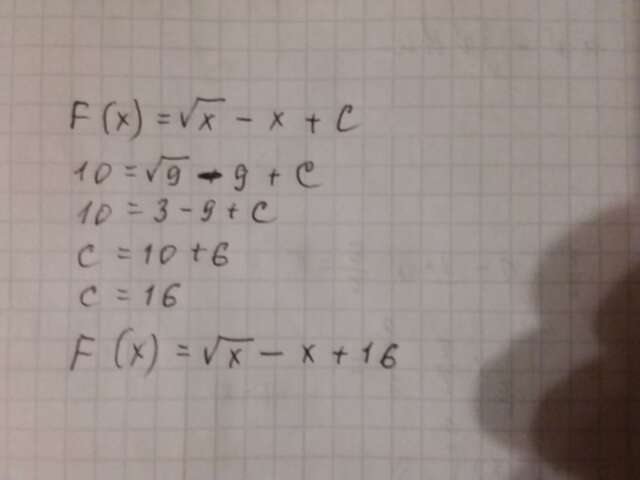 F(x) = √x - x + C
10 = √9 - 9 + C
10 = 3 - 9 + C
C = 10 + 6
C = 16
F(x) = √x - x + 16